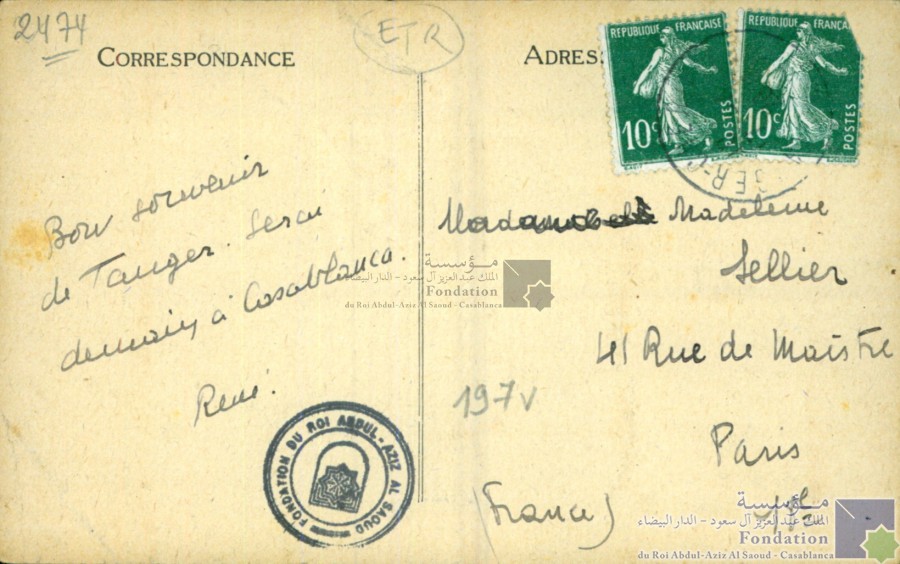 2474
ETR
CORRESPONDANCE
ADRES
REPUBLIQUE FRANÇAISE
10c
POSTES
REPUBLIQUE FRANÇA
10c
POSTES
Bon souvenir
de Tanger. Serai
demain à Casablanca.
René.
Madeleine
Sellier
41 Rue de Maistre
Paris
(France)
197v
FONDATION DU ROI ABDUL-AZIZ AL SAOUD
مؤسسة
الملك عبد العزيز آل سعود - الدار البيضاء
Fondation
du Roi Abdul-Aziz Al Saoud - Casablanca
مؤسسة
الملك عبد العزيز آل سعود - الدار البيضاء
Fondation
du Roi Abdul-Aziz Al Saoud - Casablanca